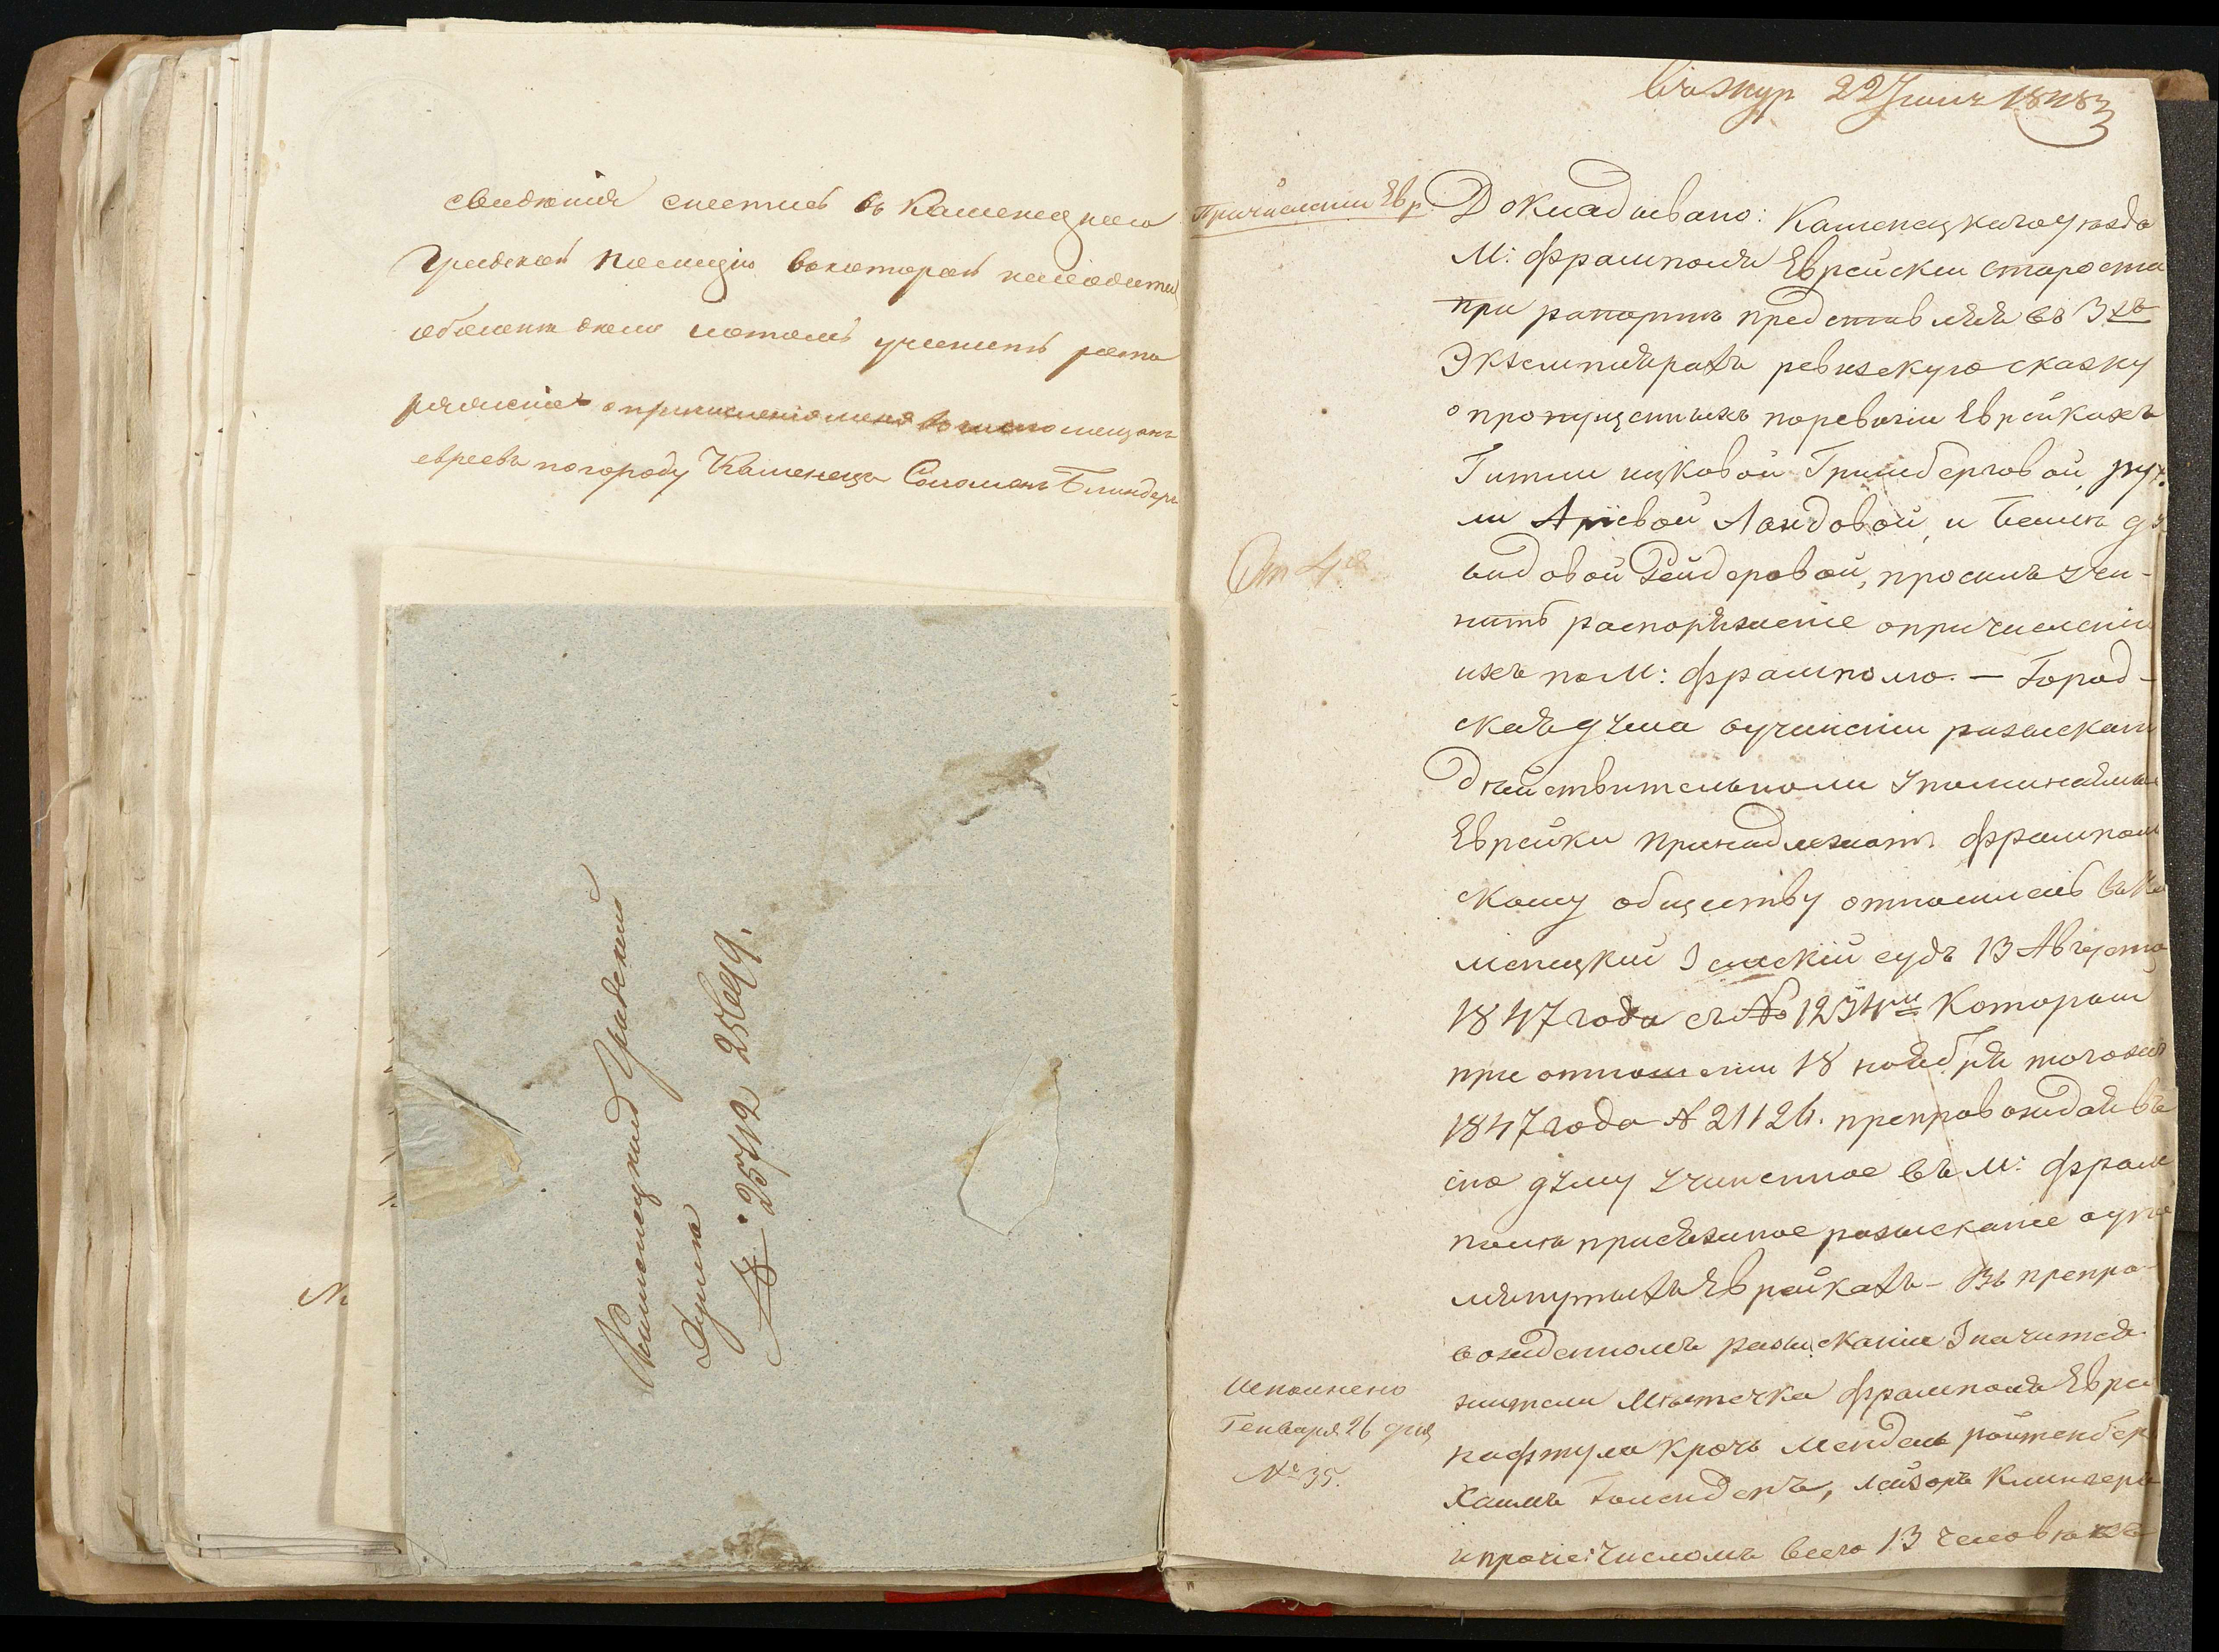 сведения снестись въ Каменецкою
Градскою Полициею вокоторой находится
обомнѣ дело ипотомъ учинить распо
ряжение о причислении меня мещанъ
евреевъ погороду Каменецу Соломонъ Блиндеръ
Каменецкая Градская
Дума
№ 2572 25 849.
22 Іюня 1848
Причисленіи Евр
Докладывано: Каменецкаго уѣзда
М: Фрамполя Еврейскій староста
при рапортѣ представляя въ 3хъ
Экземплярахъ ревизскую сказку
о пропущенныхъ поревизіи Еврейкахъ
Гитли ицковой Гринберговой, рух
ли Аріевой Ландовой, и Бейлѣ да
видовой Рейдеровой, просилъ учи-
нить распоряженіе опричисленіи
ихъ поМ: Фрамполю. — Город-
ская дума оучиненіи розыскан
дѣйствительноли упоминаемые
Еврейки принадлежатъ Фрампол
скому обществу относилась въ Ка
менецкій Земскій судъ 13 Августа
1847 года съ № 1234мъ Который
при отношеніи 18 ноября тогожъ
1847 года № 21126. препровождая въ
сію думу учиненное въ М: Фрам
полѣ присяжное розысканіе оупо
мянутыхъ Еврейкахъ — Въ препро-
вожденномъ розысканіи Значится
жители Мѣстечка Фрамполя Евреи
нафтула Крочъ Мендель ройтенбер
Хаимъ Голенденъ, лейзоръ Клингеръ
и прочіе: числомъ всего 13 человѣкъ
От 4е
Исполнено
Генваря 26 дня
№ 35.